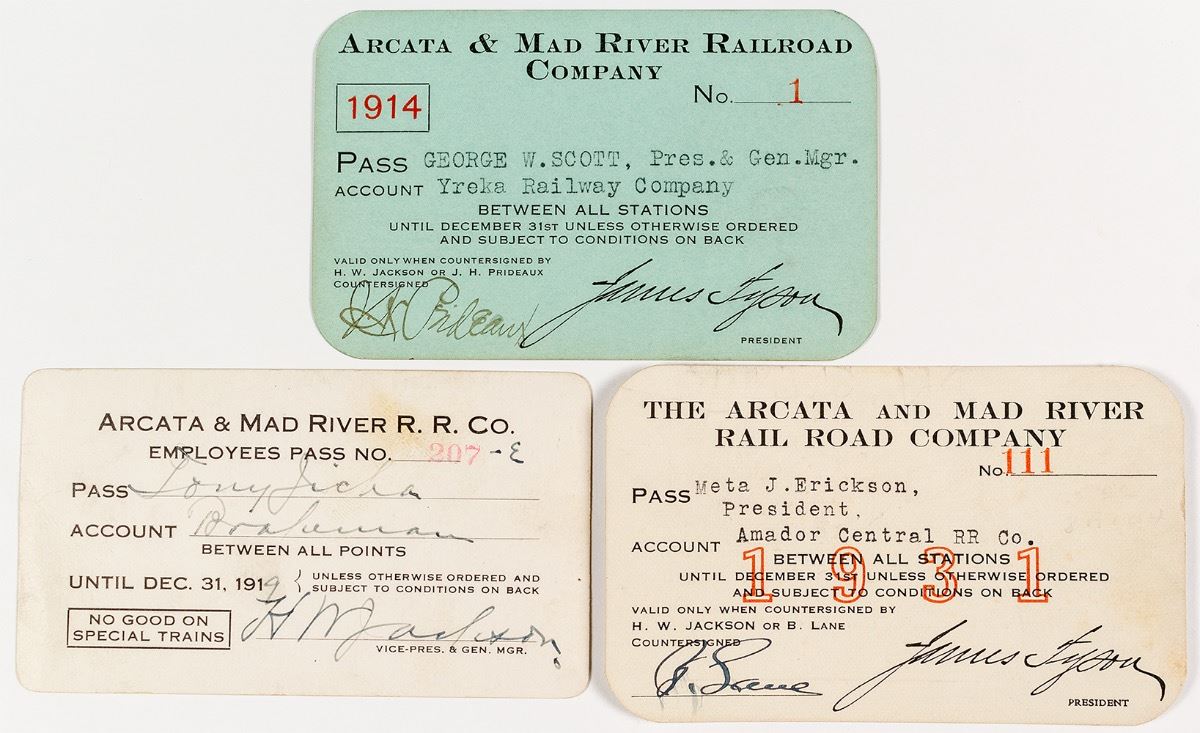 ARCATA & MAD RIVER RAILROAD
COMPANY
1914
No. 1
PASS GEORGE W.SCOTT, Pres.& Gen.Mgr.
ACCOUNT Yreka Railway Company
BETWEEN ALL STATIONS
UNTIL DECEMBER 31ST UNLESS OTHERWISE ORDERED
AND SUBJECT TO CONDITIONS ON BACK
VALID ONLY WHEN COUNTERSIGNED BY
H. W. JACKSON OR J. H. PRIDEAUX
COUNTERSIGNED
J H Prideaux
James Tyson
PRESIDENT
ARCATA & MAD RIVER R. R. CO.
EMPLOYEES PASS NO. 207 - E
PASS Tony
ACCOUNT Brakeman
BETWEEN ALL POINTS
UNTIL DEC. 31, 1919 { UNLESS OTHERWISE ORDERED AND
SUBJECT TO CONDITIONS ON BACK
NO GOOD ON
SPECIAL TRAINS
H W Jackson
VICE-PRES. & GEN. MGR.
THE ARCATA AND MAD RIVER
RAIL ROAD COMPANY
No. 111
PASS Meta J.Erickson,
President,
ACCOUNT Amador Central RR Co.
1931
BETWEEN ALL STATIONS
UNTIL DECEMBER 31ST UNLESS OTHERWISE ORDERED
AND SUBJECT TO CONDITIONS ON BACK
VALID ONLY WHEN COUNTERSIGNED BY
H. W. JACKSON OR B. LANE
COUNTERSIGNED
B. Lane
James Tyson
PRESIDENT